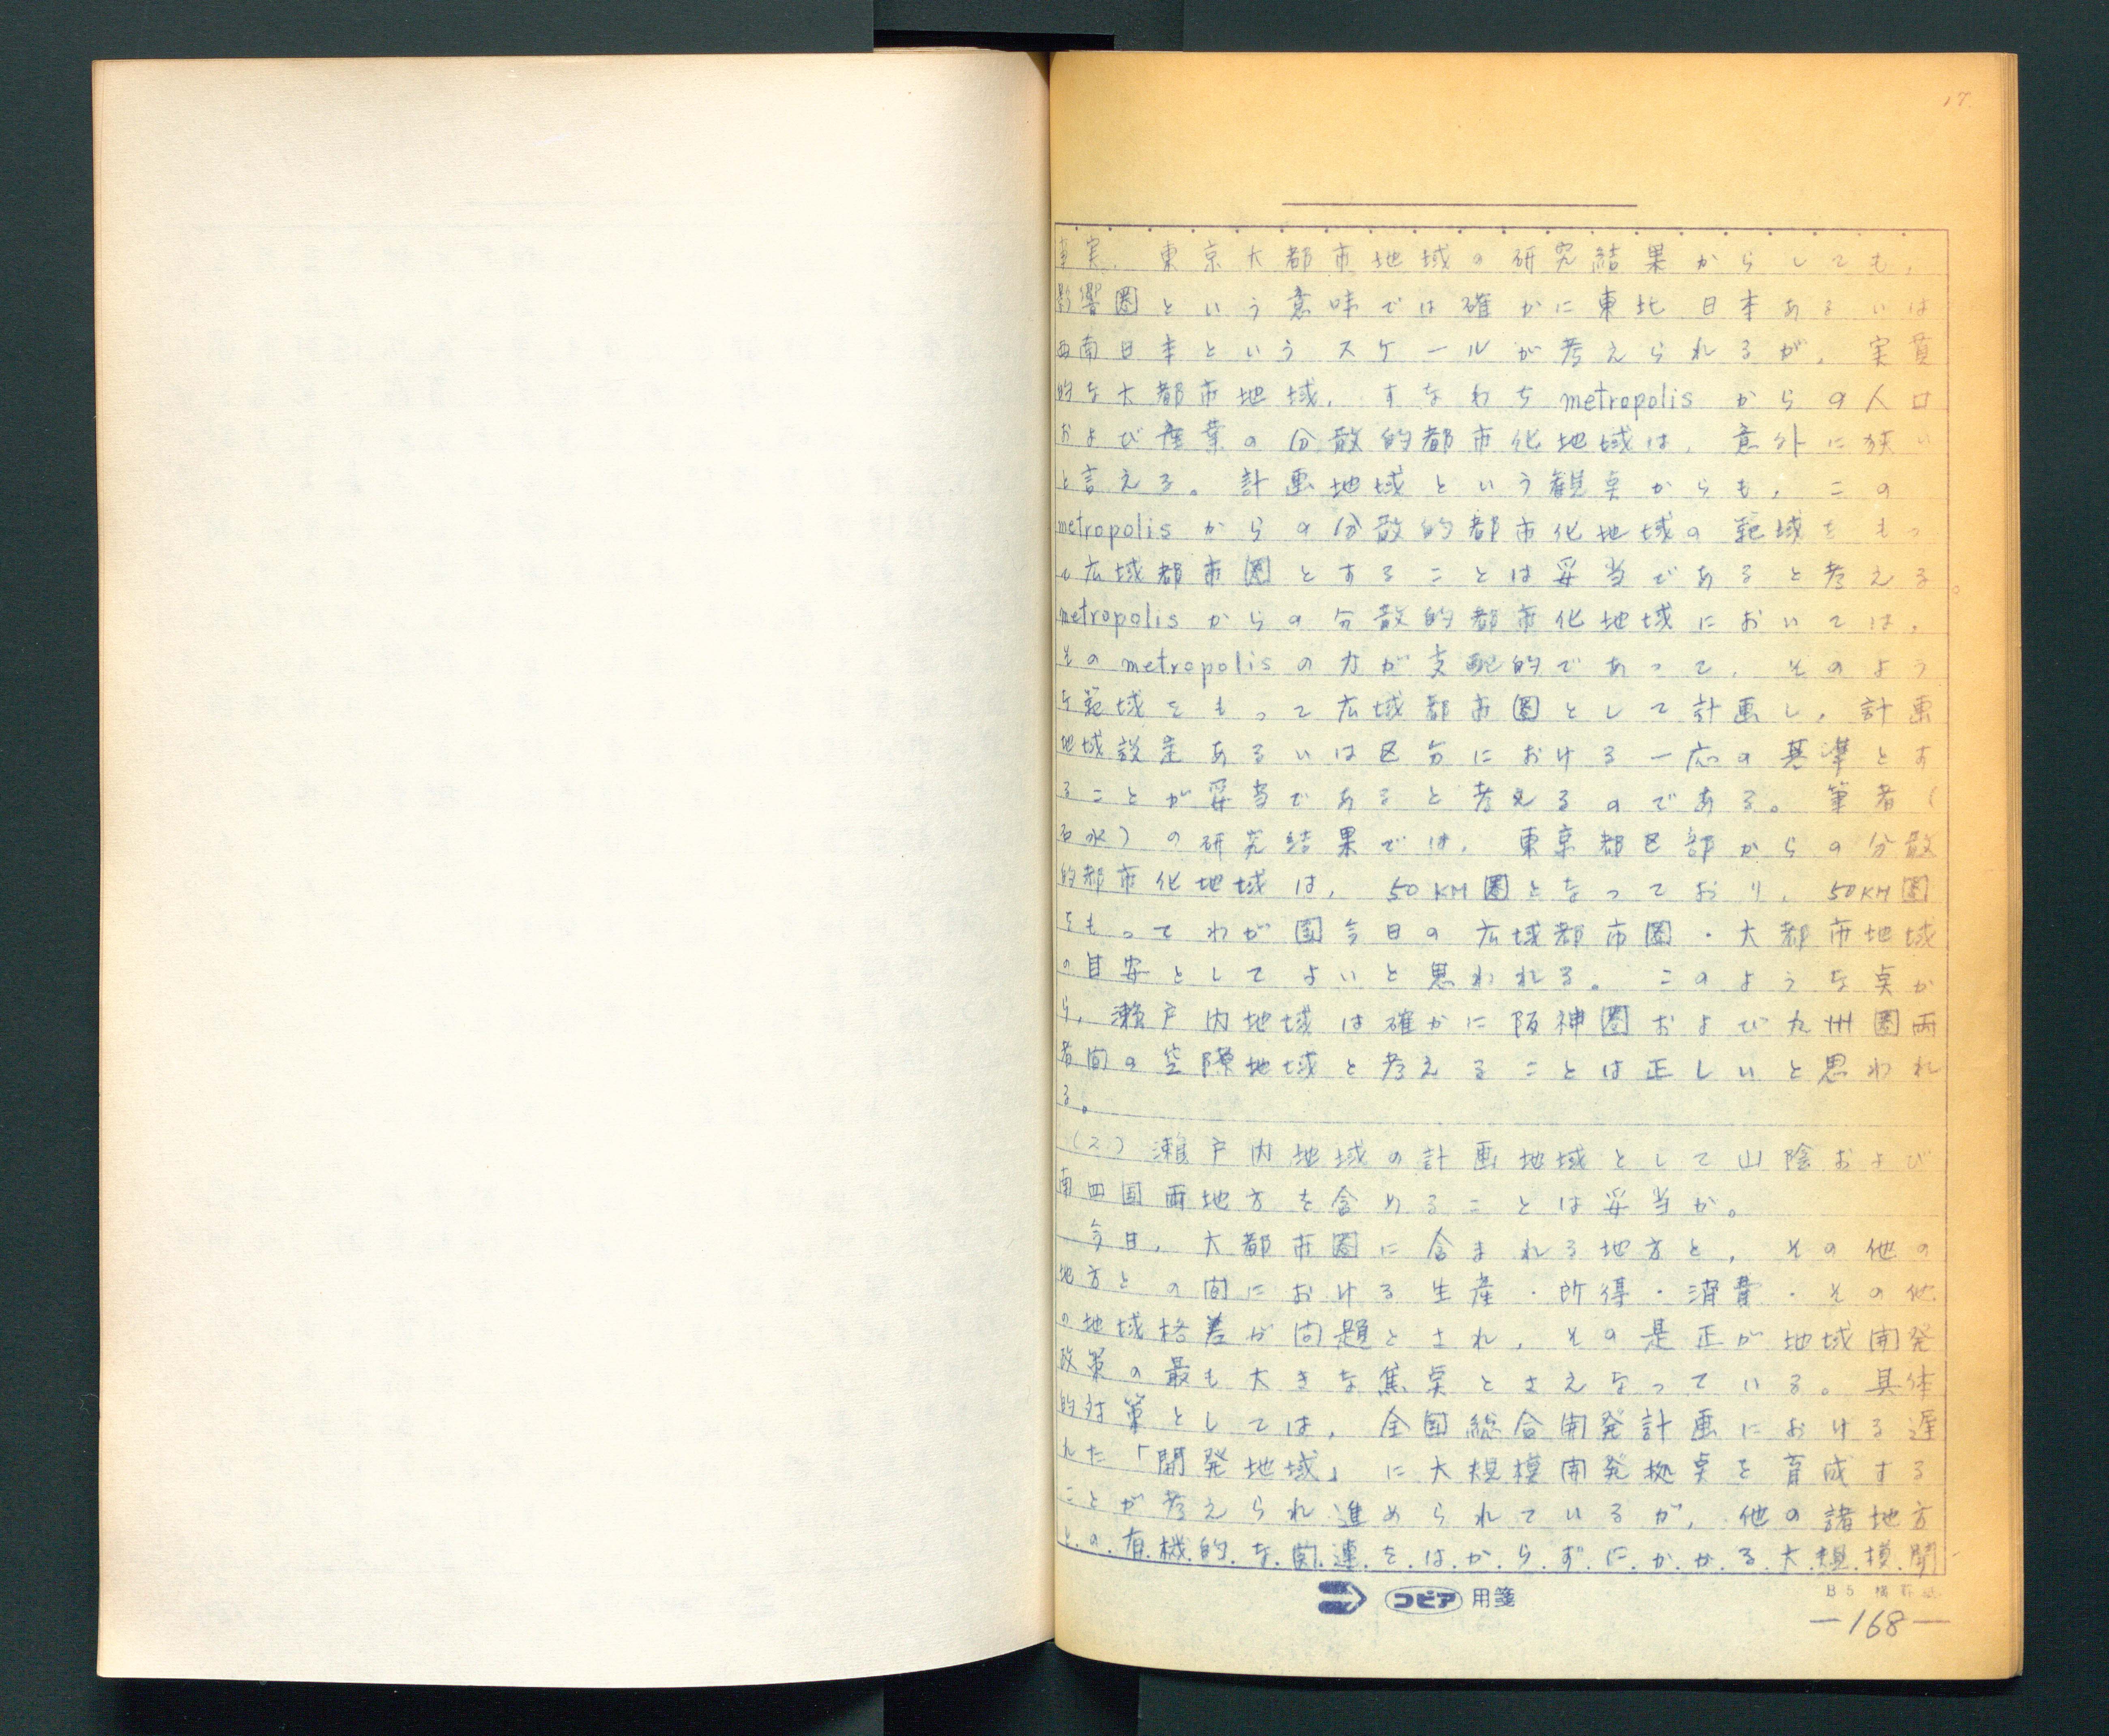 17.
事実,東京大都市地域の研究結果からしても,
影響圏という意味では確かに東北日本あるいは
西南日本というスケールが考えられるが,実質
的な大都市地域,すなわちmetropolisからの人口
および産業の分散的都市化地域は,意外に狭い
と言える。計画地域という観点からも,この
metropolisからの分散的都市化地域の範域をもっ
て広域都市圏とすることは妥当であると考える。
metropolisからの分散的都市化地域においては,
そのmetropolisの力が支配的であって,そのよう
な範域をもって広域都市圏として計画し,計画
地域設定あるいは区分における一応の基準とす
ることが妥当であると考えるのである。筆者(
石水)の研究結果では,東京都区部からの分散
的都市化地域は,50KM圏となっており,50KM圏
をもってわが国今日の広域都市圏・大都市地域
の目安としてよいと思われる。このような点か
ら,瀬戸内地域は確かに阪神圏および九州圏両
者間の空隙地域と考えることは正しいと思われ
る。
(2)瀬戸内地域の計画地域として山陰および
南四国両地方を含めることは妥当か。
今日,大都市圏に含まれる地方と,その他の
地方との間における生産・所得・消費・その他
の地域格差が問題とされ,その是正が地域開発
政策の最も大きな焦点とさえなっている。具体
的対策としては,全国総合開発計画における遅
れた「開発地域」に大規模開発拠点を育成する
ことが考えられ進められているが,他の諸地方
との有機的な関連をはからずにかかる大規模開
コピア用箋
B5 横罫紙
—168—